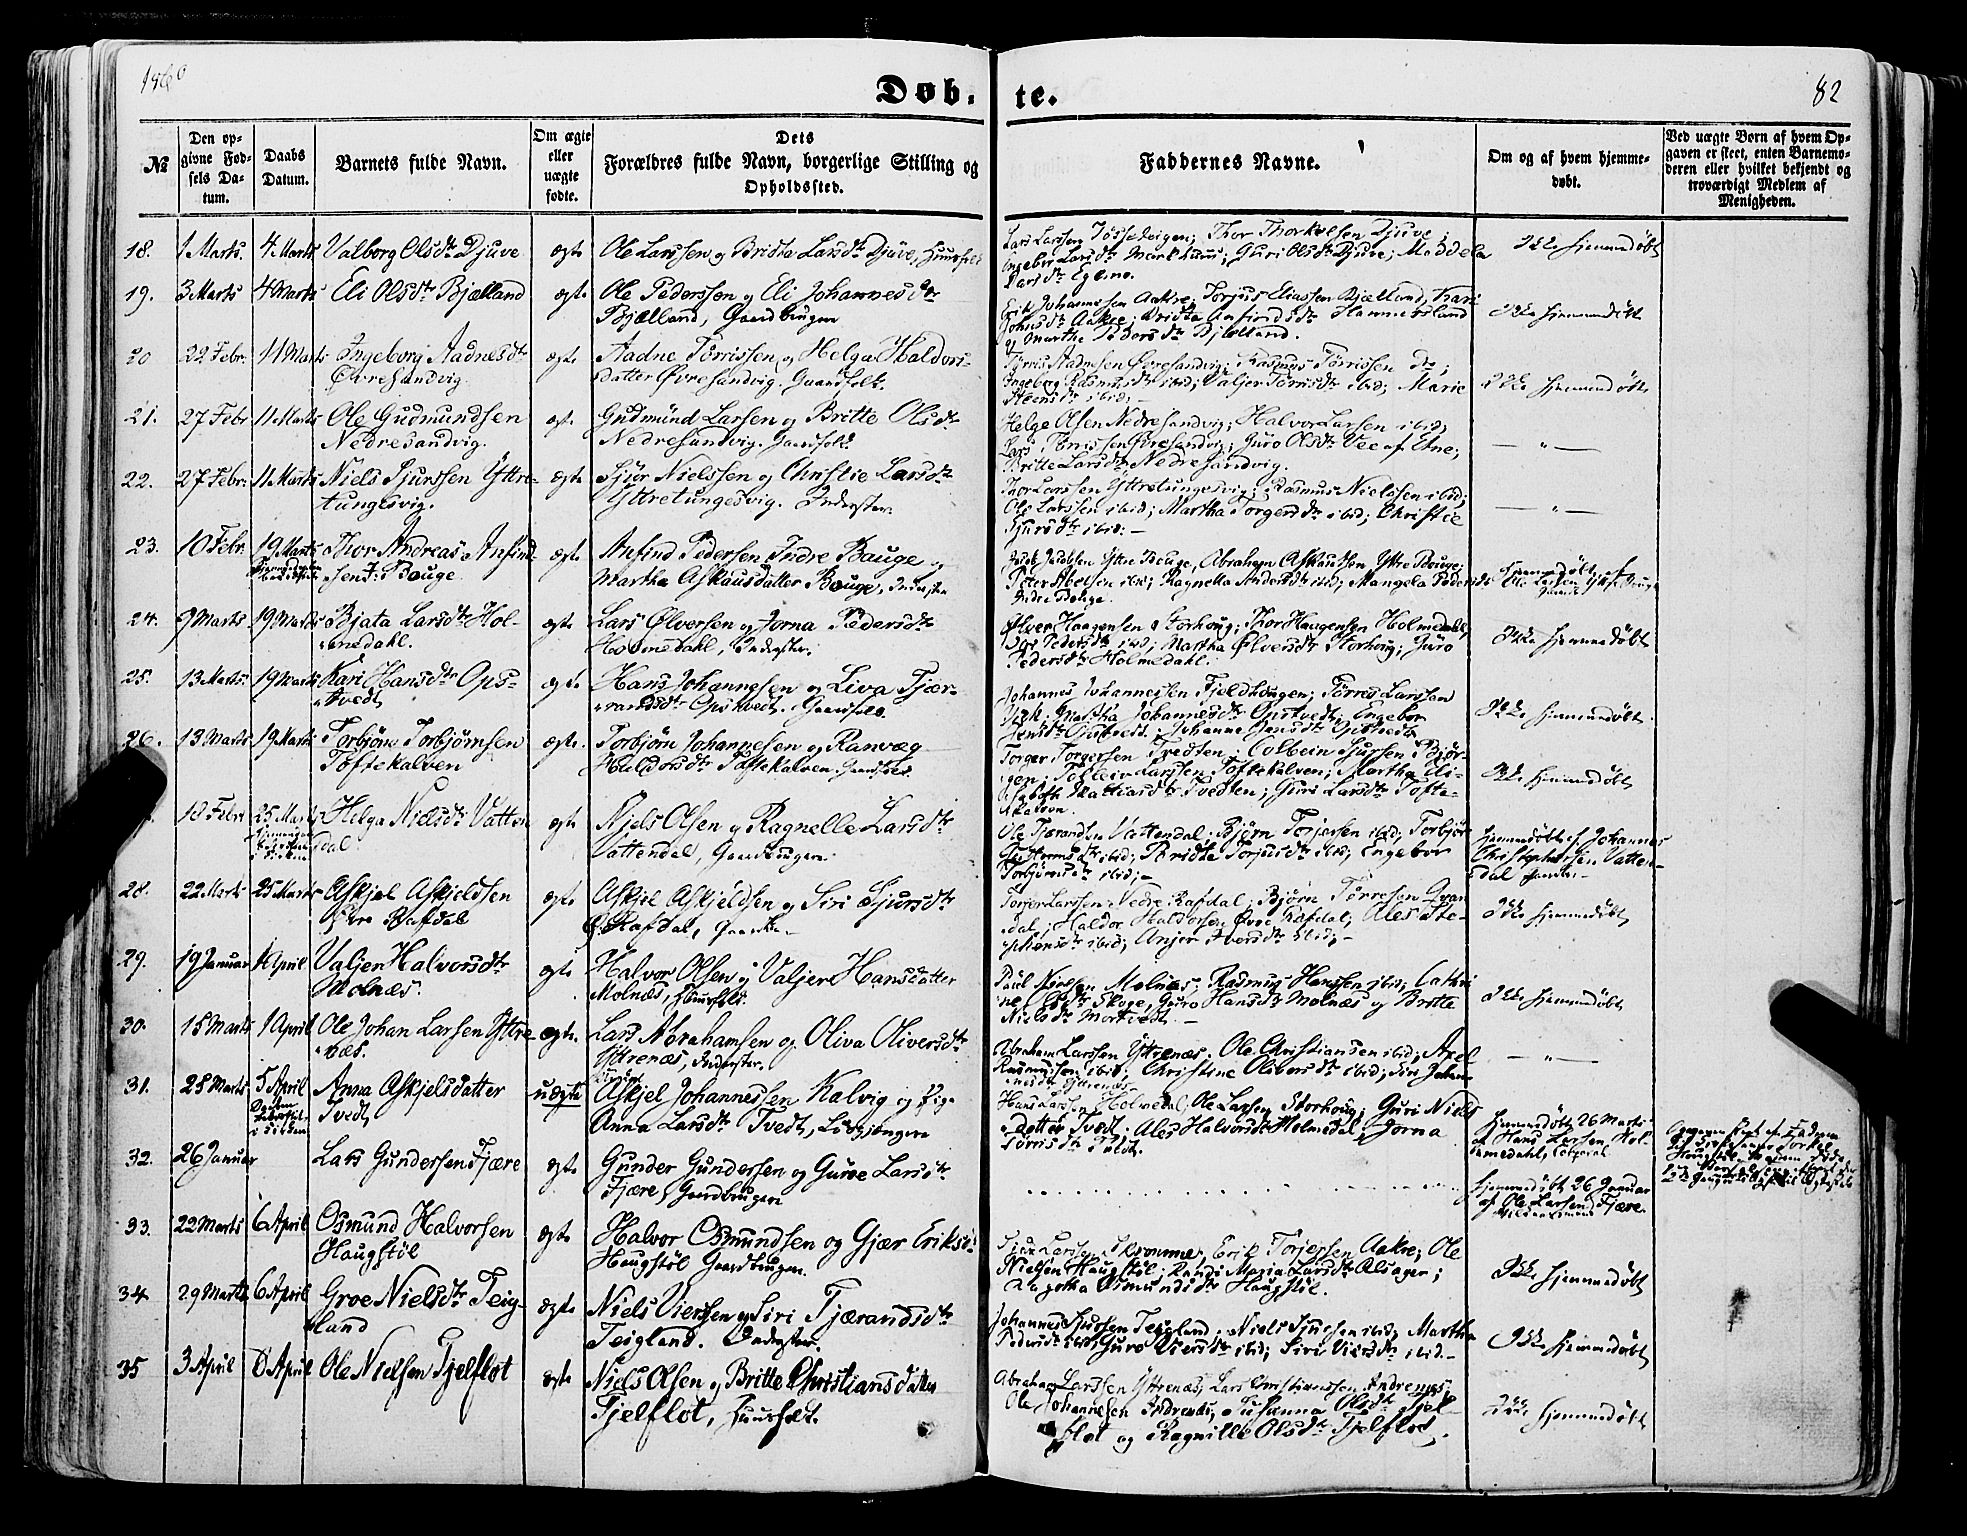 1860
Døb-
te.
82
№
Den op-
givne Fød-
sels Da-
tum.
Daabs
Datum.
Barnets fulde Navn.
Om ægte
eller
uægte
fødte.
Dets
Forældres fulde Navn, borgerlige Stilling og
Opholdssted.
Faddernes Navne.
Om og af hvem hjemme-
døbt.
Ved uægte Børn af hvem Op-
gaven er skeet, enten Barnemo-
deren eller hvilket bekjendt og
troværdigt Medlem af
Menigheden.
18. 1 Marts 4 Marts Valborg Olsdtr Djuve ægte Ole Larssen og Bridta Larsdtr Djuve, Huusfolk
Lars Larssen Jøssedvigen; Thor Thorkelsen Djuve;
Ingebor Larsdtr Markhuus; Guri Olsdtr Djuve; Maddela
Larsdtr Egene.
Ikke hjemmedøbt
19. 3 Marts 4 Marts Eli Olsdtr Bjælland ægte Ole Pederssen og Eli Johannesdtr
Bjælland, Gaardbruger
Erik Johannesen Aakre; Torjus Eliassen Bjælland, Kari
Johnsdtr Aakre; Bridta Anfindsdtr Hammersland
og Marthe Pedersdtr Bjælland.
Ikke hjemmedøbt
20 22 Febr. 11 Marts Ingeborg Aadnesdtr
Øvresandvig.
ægte Aadne Tørrissen og Helga Haldors-
datter Øvresandvig. Gaardfolk.
Tørris Aadnesen Øvresandvig; Rasmus Tørrissen do;
Ingeborg Rasmusdtr ibid; Valjer Tørrisdtr ibid; Marie
Steensdtr ibid;
Ikke hjemmedøbt
21. 27 Febr 11 Marts Ole Gudmundsen
Nedresandvig.
ægte Gudmund Larsen og Britte Olsdtr
Nedresandvig. Gaardfolk.
Helge Olsen Nedresandvig; Halvor Larsen ibid;
Lars Tørrissen Øvresandvig; Guro Olsdtr Vee af Etne;
Britte Larsdtr Nedresandvig.
— " —
22. 27 Febr. 11 Marts Niels Sjurssen Yttre-
tungesvig.
ægte Sjur Nielssen og Christie Larsdtr
Yttretungesvig. Inderster.
Thor Larssen Yttretungesvig; Rasmus Nielssen ibid;
Ole Larssen ibid; Martha Torgersdtr ibid; Christie
Sjursdtr ibid:
— " —
23. 10 Febr. 19 Marts Thor Andreas Anfind-
sen I: Bauge
ægte Anfind Pedersen Indre Bauge og
Martha Askausdatter Bauge, Inderster
Jacob Jacobsen Yttre Bauge, Abraham Askautsen Yttre Bauge;
Peter Abelsen ibid; Ragnella Andersdtr ibid; Mangela Pedersdtr
Indre Bauge.
Hjemmedøbt af
Ole Larsen Yttre Bauge
24. 9 Marts 19 Marts Bjata Larsdtr Hol-
medahl.
ægte Lars Ølversen og Jorna Pedersdtr
Holmedahl, Inderster.
Ølver Haagensen Storhoug; Thor Haugensen Holmedahl;
Pedersdtr ibid; Martha Ølversdtr Storhoug; Guro
Pedersdtr Holmedahl.
Ikke hjemmedøbt
25. 13 Marts. 19 Marts Kari Hansdtr Ops-
tvedt
ægte Hans Johannesen og Liva Tjær-
randsdtr Opstvedt. Gaardfolk.
Johannes Johannessen Fjeldhougen; Tørres Larssen
Martha Johannesdtr Opstvedt, Engebor
Jensdtr Opstvedt; Johanne Jensdtr Opstvedt
Ikke hjemmedøbt.
26. 13 Marts 19 Marts Torbjørn Torbjørnsen
Toftekalven
ægte. Torbjørn Johannesen og Ranveg
Haldorsdtr Toftekalven. Gaardfolk.
Torger Torgersen Tvedten; Colbein Sjursen Bjør-
gen; Tolleiv Larssen Toftekalven; Martha Eli-
sabeth Mattiasdtr Tvedten; Guri Larsdtr Tofte-
kalven.
Ikke hjemmedøbt
18 Febr 25 Marts Helga Nielsdtr Vatten
dal
ægte Niels Olsen og Ragnelle Larsdtr
Vattendal, Gaardbruger.
Ole Tjærandsen Vattendal; Bjørn Torjersen ibid, Torbjør
Thormsdtr ibid; Bridta Torjusdtr ibid; Engebor
Torbjørnsdtr ibid;
Hjemmedøbt af Johannes
Christophersen Vatten-
dal
28. 22 Marts 25 Marts Askjel Askjeldsen
Øvre Rafdal
ægte Askjel Askjeldsen og Siri Sjursdtr
Ø. Rafdal,
Torger Larssen Nedre Rafdal; Bjørn Tørresen Qvan
dal; Haldor Haldorsen Øvre Rafdal; Ales Ste-
phensdtr ibid; Anjer Iversdtr ibid;
Ikke hjemmedøbt
29. 19 Januar 1 April Valjer Halvorsdtr
Molnæs.
ægte Halvor Olsen og Valjer Hansdatter
Molnæs, Huusfolk.
Paul Nielsen Molnæs; Rasmus Hanssen ibid; Cathri
ne Olsdtr Skoge, Guro Hansdtr Molnæs og Britte
Nielsdtr Mortvedt.
Ikke hjemmedøbt
30. 15 Marts 1 April Ole Johan Larsen Yttre
næs.
ægte. Lars Abrahamsen og Oliva Oliversdtr
Yttrenæs, Inderster.
Abraham Larssen Yttrenæs. Ole Christiansen ibid; Axel
Rasmussen ibid; Christine Oliversdtr ibid; Siri Johan-
nesdtr Yttrenæs
— " —
31. 25 Marts 5 April Anna Askjelsdatter
Tvedt
uægte Askjel Johannessen Kalvig og Pige
Anna Larsdtr Tvedt, Løsgjængere
Hans Larsen Holmedal; Ole Larsen Storhoug; Guri Niels
datter Tvedt. Ales Halvorsdtr Holmedal, Jorna
Tørrisdtr
Hjemmedøbt 26 Marts
af Hans Larsen, Hol-
medahl, Corporal.
32. 26 Januar Lars Gundersen Fjære ægte Gunder Gundersen og Guroe Larsdtr
Fjære, Gaardbruger
Hjemmedøbt 26 Januar
af Ole Larsen Fjære.
33. 22 Marts 6 April Osmund Halvorsen
Haugstøl
ægte Halvor Osmundsen og Gjær Eriksd.
Haugstøl Gaardbruger.
Sjur Larsen Skroumme, Erik Torjersen Aakre; Ole
Nielsen Haugstøl; Randi Maria Larsdtr Alsager;
Osmundsdtr Haugstøl.
Ikke hjemmedøbt
34 29 Marts 6 April Groe Nielsdtr Teig-
land
ægte Niels Vierssen og Siri Tjærandsdtr
Teigland. Inderster.
Johannes Sjursen Teigland. Niels Sjursen ibid, Martha
Pedersdtr ibid; Guro Viersdtr ibid; Siri Viersdtr ibid.
Ikke hjemmedøbt
35 3 April 8 April Ole Nielsen Tjelflot ægte Niels Olsen og Britte Christiansdatter
Tjelflot, Huusfæt.
Abraham Larssen Yttrenæs; Lars Christianssen Indrenæs;
Ole Johannesen Indrenæs; Susanna Olsdtr Tjel-
flot og Ragnille Olsdtr Tjelflot.
Ikke hjemmedøbt